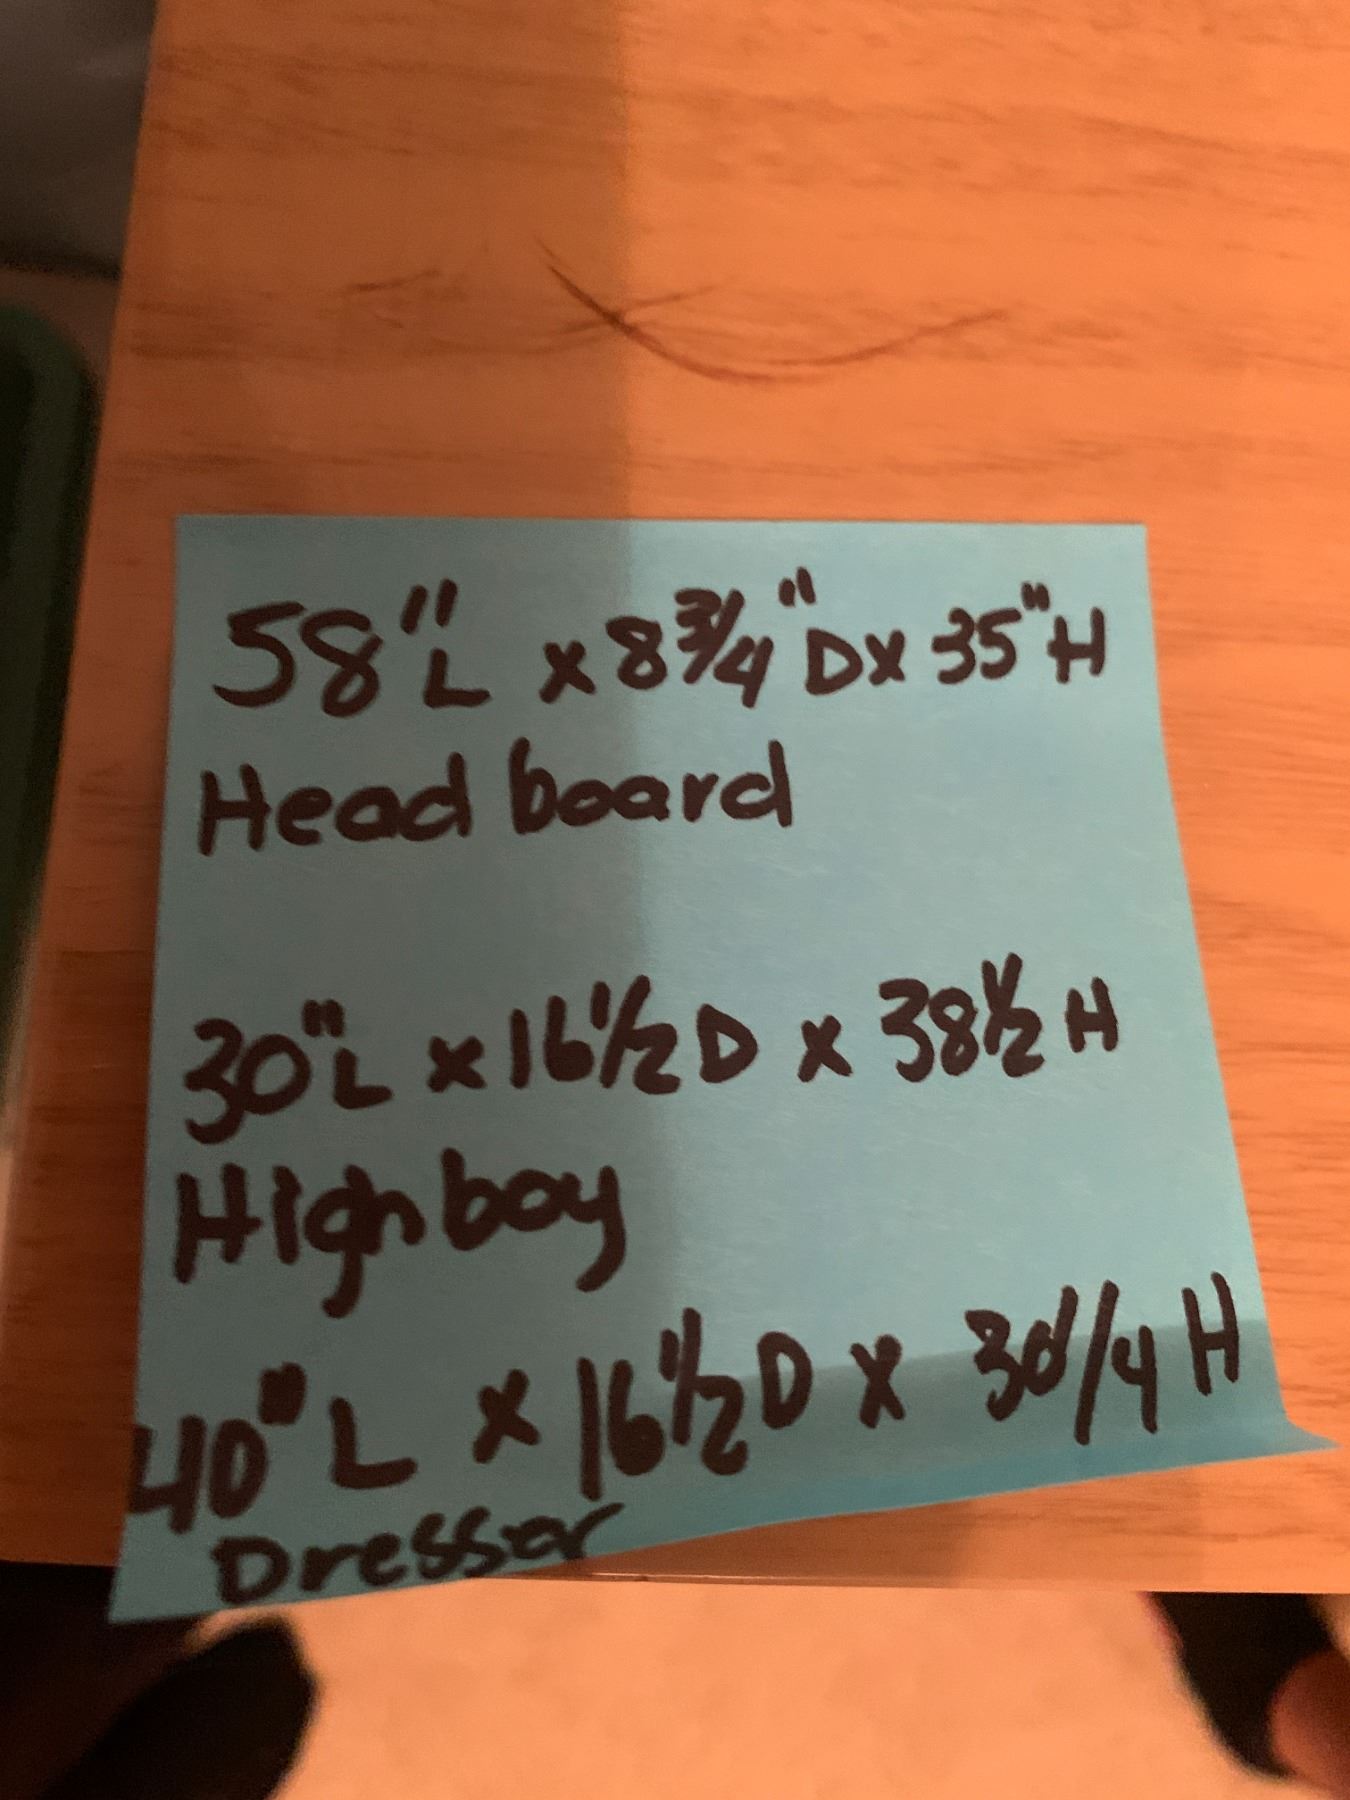 58"L x 8 3/4" D x 35" H
Head board
30"L x 16 1/2 D x 38 1/2 H
High boy
40" L x 16 1/2 D x 30 1/4 H
Dresser